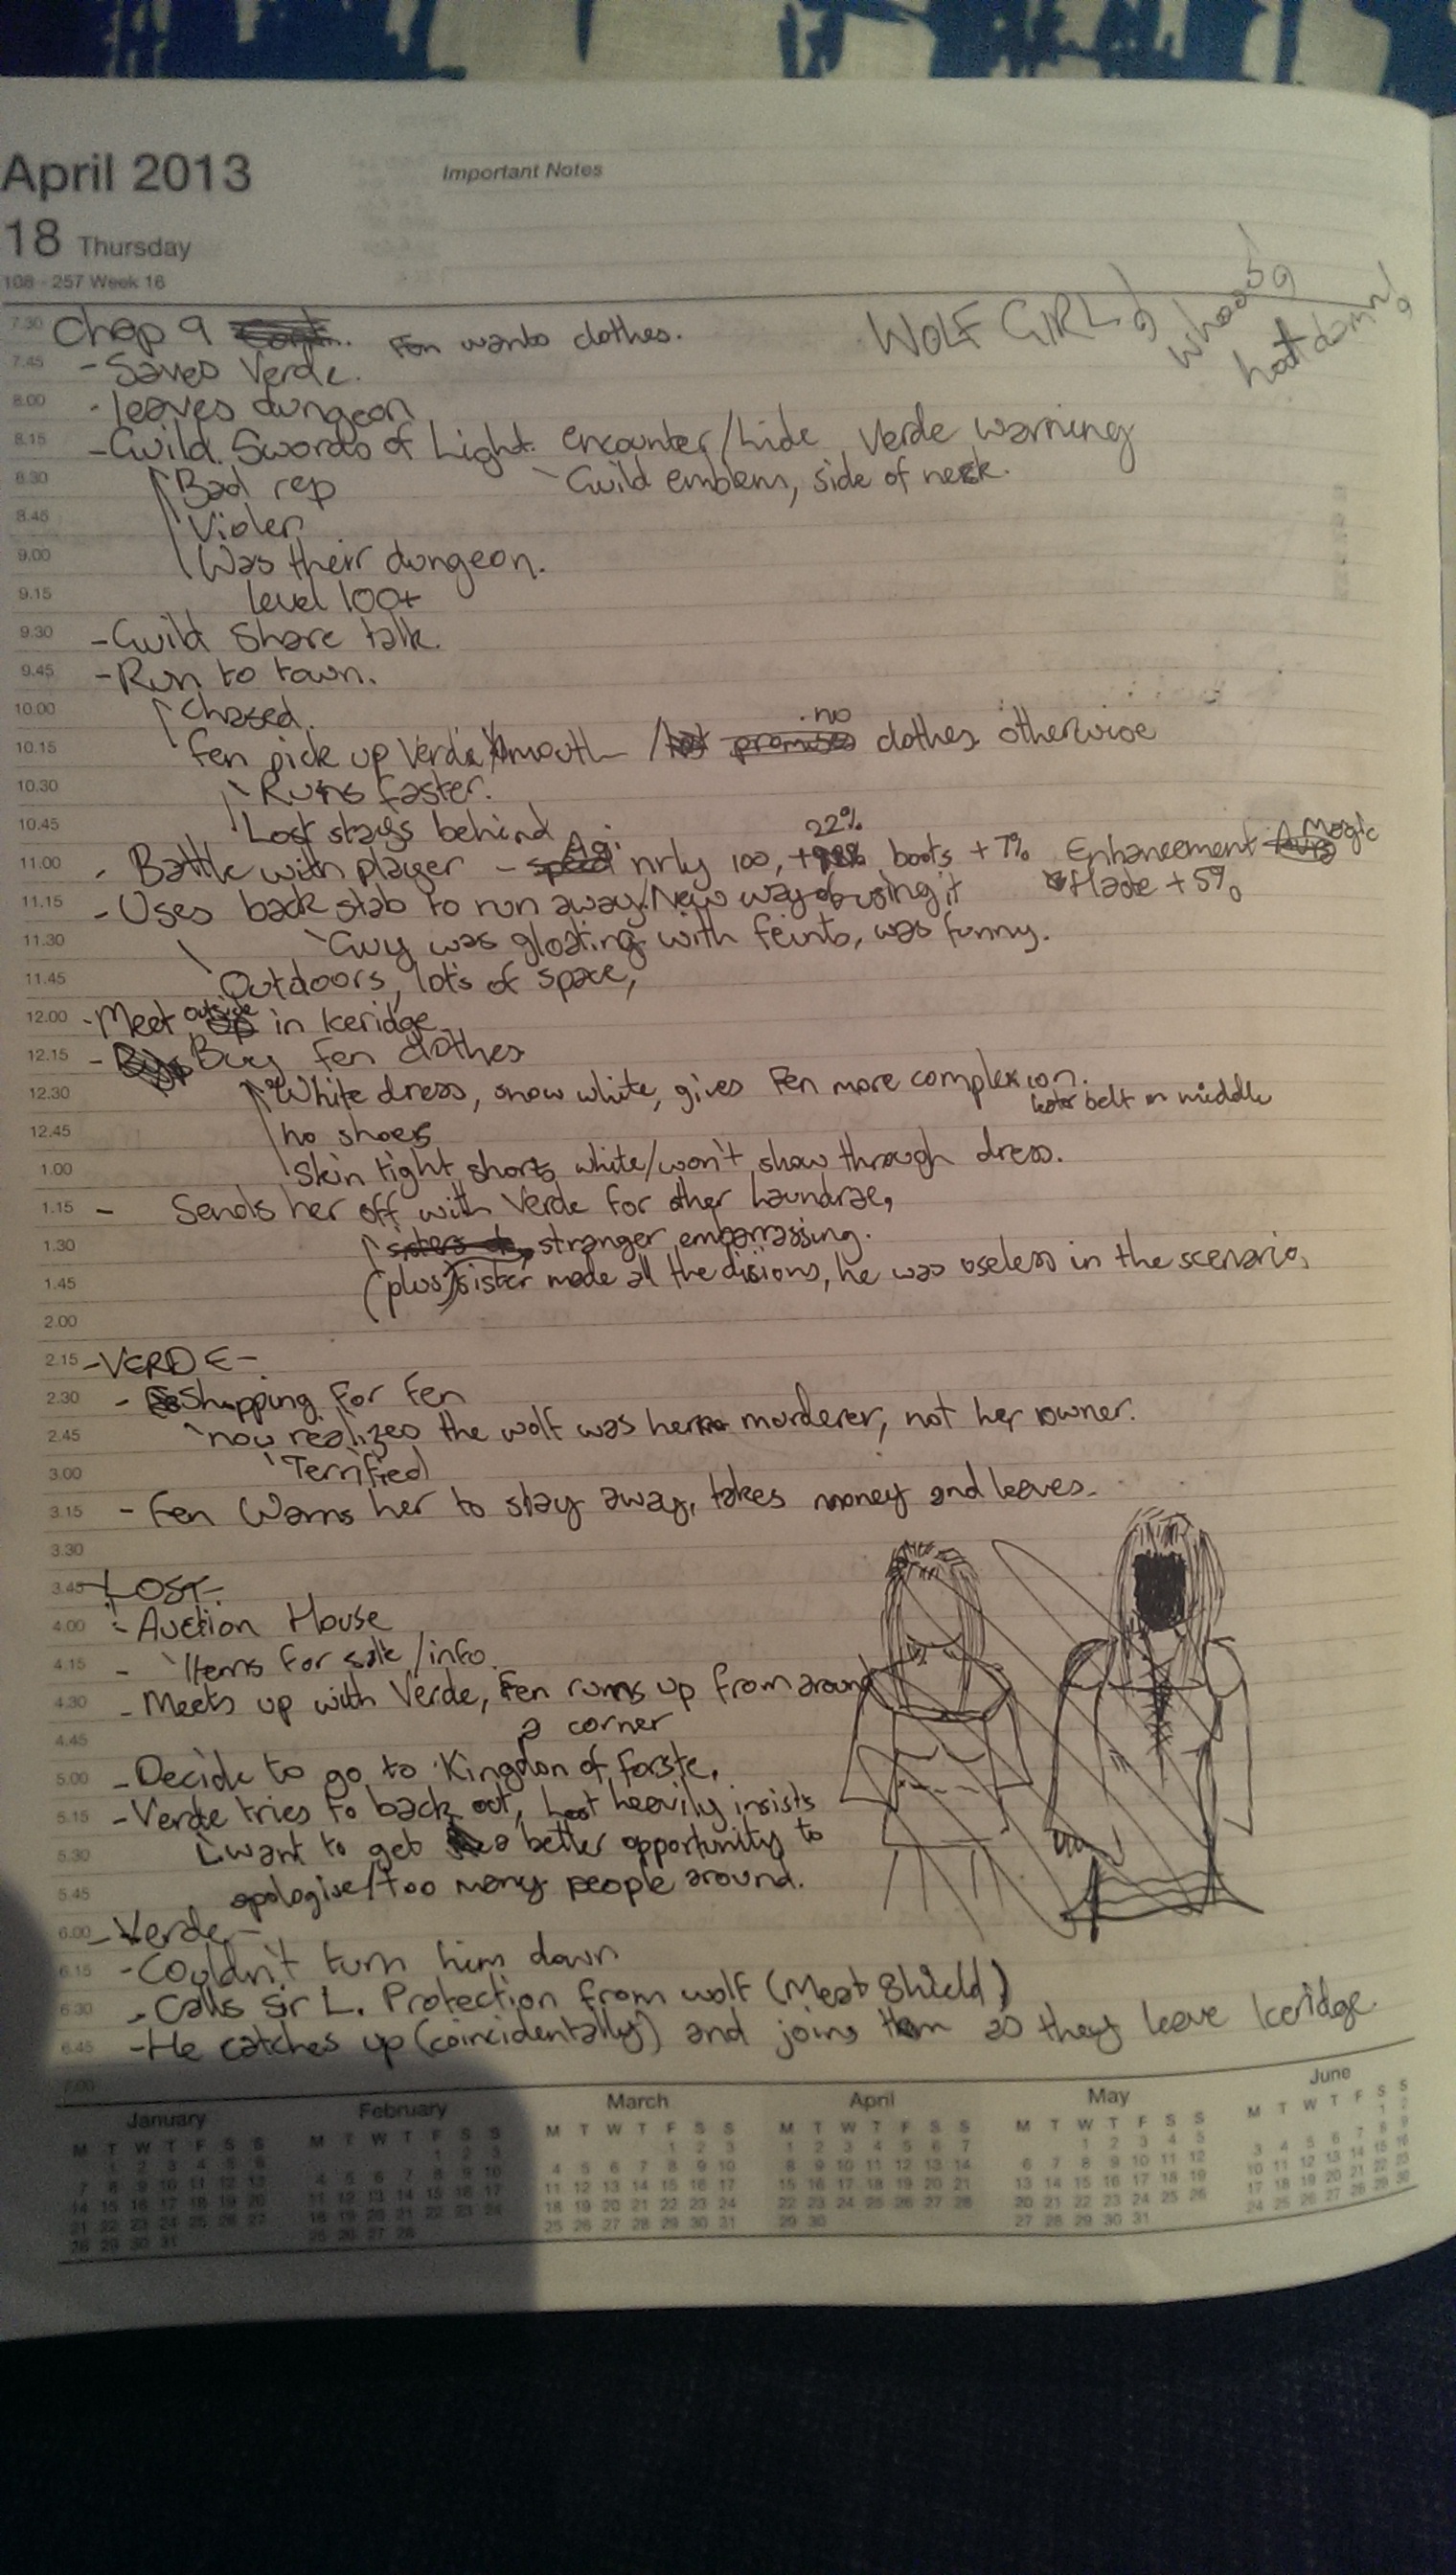 April 2013
Important Notes
18 Thursday
108 - 257 Week 16
WOLF GIRL
whoo
hot damn!
7.30 Chap 9 Fen wants clothes.
7.45 - Saves Verde.
8.00 - leaves dungeon
8.15 - Guild. Swords of Light. encounter/hide Verde warning
8.30 Bad rep Guild emblem, side of neck.
8.45 Violen
9.00 Was their dungeon.
9.15 level 100+
9.30 - Guild Share talk.
9.45 - Run to town.
10.00 Chased.
no
10.15 Fen pick up Verde mouth / promises clothes otherwise
10.30 Runs faster.
10.45 Lost stays behind
Agi 22% Magic
11.00 - Battle with player - speed nrly 100, + boots +7% Enhancement
11.15 - Uses back stab to run away/New way of using it +5%
11.30 Guy was gloating with feints, was funny.
11.45 Outdoors, lots of space,
12.00 - Meet outside in Iceridge
12.15 - Buy Fen clothes
12.30 White dress, snow white, gives Fen more complexion.
belt in middle
12.45 no shoes
1.00 Skin tight shorts white/won't show through dress.
1.15 - Sends her off with Verde for other laundrae,
1.30 stranger embarrassing.
1.45 (plus) sister made all the disions, he was useless in the scenario,
2.00
2.15 -VERDE-
2.30 - Shopping for Fen
2.45 now realizes the wolf was her murderer, not her owner.
3.00 Terrified
3.15 - Fen Warns her to stay away, takes money and leaves.
3.30
3.45 -LOST-
4.00 - Auction House
4.15 - Items for sale/info.
4.30 - Meets up with Verde, Fen runs up from around
4.45 a corner
5.00 - Decide to go to Kingdon of Forste.
5.15 - Verde tries to back out, Lost heavily insists
5.30 want to get a better opportunity to
5.45 apologise/too many people around.
6.00 -Verde-
6.15 - Couldn't turn him down
6.30 - Calls Sir L. Protection from wolf (Meat Shield)
6.45 - He catches up (coincidentally) and joins them as they leave Iceridge.
7.00
January February March April May June
M T W T F S S M T W T F S S M T W T F S S M T W T F S S M T W T F S S M T W T F S S
1 2 3 4 5 6 1 2 3 1 2 3 1 2 3 4 5 6 7 1 2 3 4 5 1 2
7 8 9 10 11 12 13 4 5 6 7 8 9 10 4 5 6 7 8 9 10 8 9 10 11 12 13 14 6 7 8 9 10 11 12 3 4 5 6 7 8 9
14 15 16 17 18 19 20 11 12 13 14 15 16 17 11 12 13 14 15 16 17 15 16 17 18 19 20 21 13 14 15 16 17 18 19 10 11 12 13 14 15 16
21 22 23 24 25 26 27 18 19 20 21 22 23 24 18 19 20 21 22 23 24 22 23 24 25 26 27 28 20 21 22 23 24 25 26 17 18 19 20 21 22 23
28 29 30 31 25 26 27 28 25 26 27 28 29 30 31 29 30 27 28 29 30 31 24 25 26 27 28 29 30